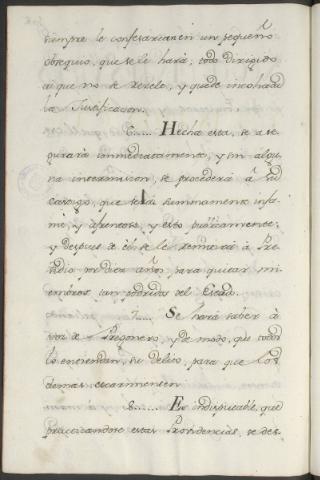 siempre le confesarian en un pequeño
obsequio, que se le hará; todo dirigido
á que no se rezele, y quede incohada
la Justificacion.
6..... Hecha esta, se ase
gurará inmediatamente, y sin algu
na intermision, se procederá á su
castigo, que será sumamente infa
me, y afrentoso, y esto publicamente;
y despues de el se le remitirá á Pre
sidio por diez años, para quitar mi
embros tan podridos del Estado.
7..... Se hará saber á
voz de Pregonero, y de modo, que todos
lo entiendan, su delito, para que los
demas escarmienten.
8...... Es indisputable, que
practicandose estas Providencias, se des